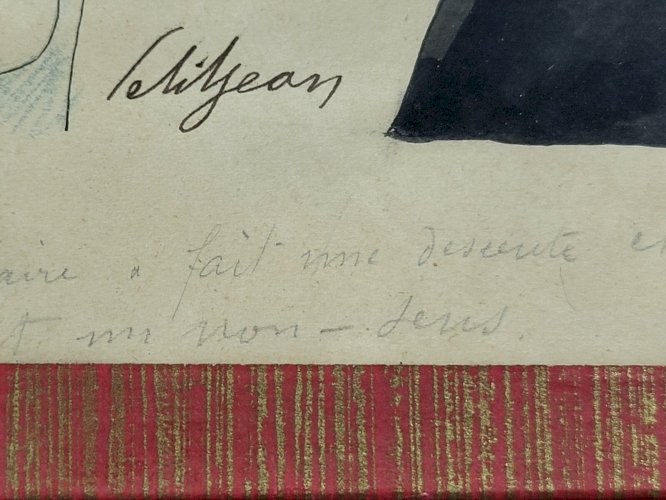 Petitjean
aire a fait une descente e
t un non-sens.